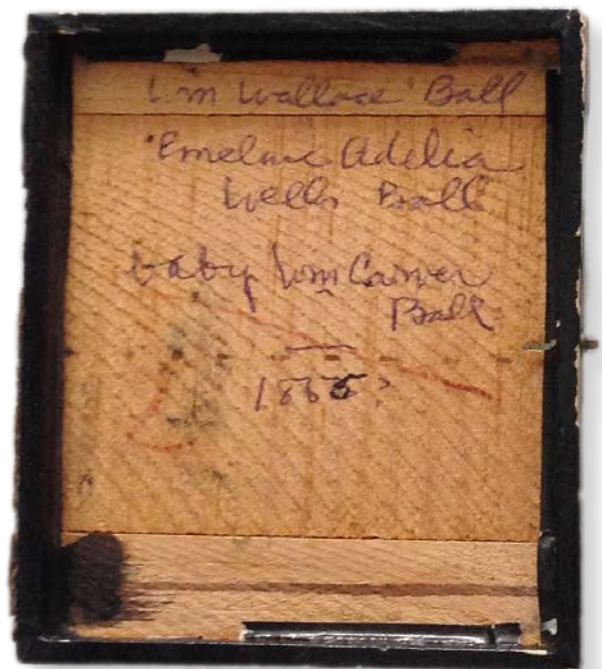 Wm Wallace Ball
Emeline Adelia
Wells Ball
baby Wm Carver
Ball
1865?